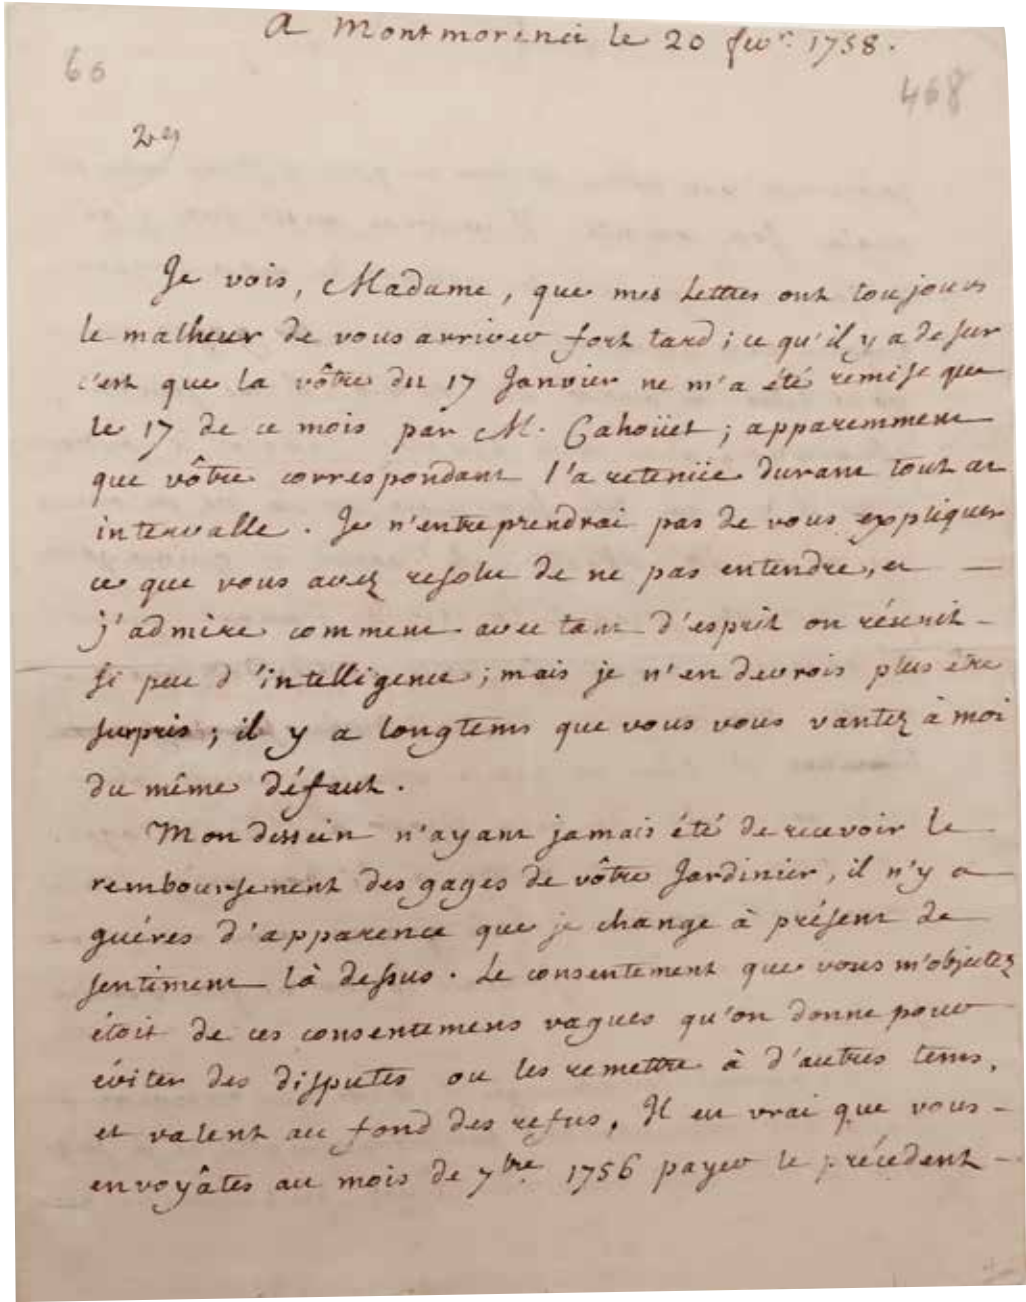 A Montmorenci le 20 fevr. 1758.
66
468
Je vois, Madame, que mes Lettres ont toujours
le malheur de vous arriver fort tard ; ce qu'il y a de sur
c'est que la vôtre du 17 Janvier ne m'a été remise que
le 17 de ce mois par M. Cahoüet ; apparemment
que vôtre correspondant l'a retenüe durant tout cet
intervalle. Je n'entreprendrai pas de vous expliquer
ce que vous avez resolu de ne pas entendre, et
j'admire comment avec tant d'esprit on réunit
si peu d'intelligence ; mais je n'en devrois plus être
surpris ; il y a longtems que vous vous vantez à moi
du même défaut.
Mon dessein n'ayant jamais été de recevoir le
remboursement des gages de vôtre Jardinier, il n'y a
guéres d'apparence que je change à présent de
sentiment là dessus. Le consentement que vous m'objectez
étoit de ces consentemens vagues qu'on donne pour
éviter des disputes ou les remettre à d'autres tems,
et valent au fond des refus. Il est vrai que vous
envoyâtes au mois de 7bre 1756 payer le précédent